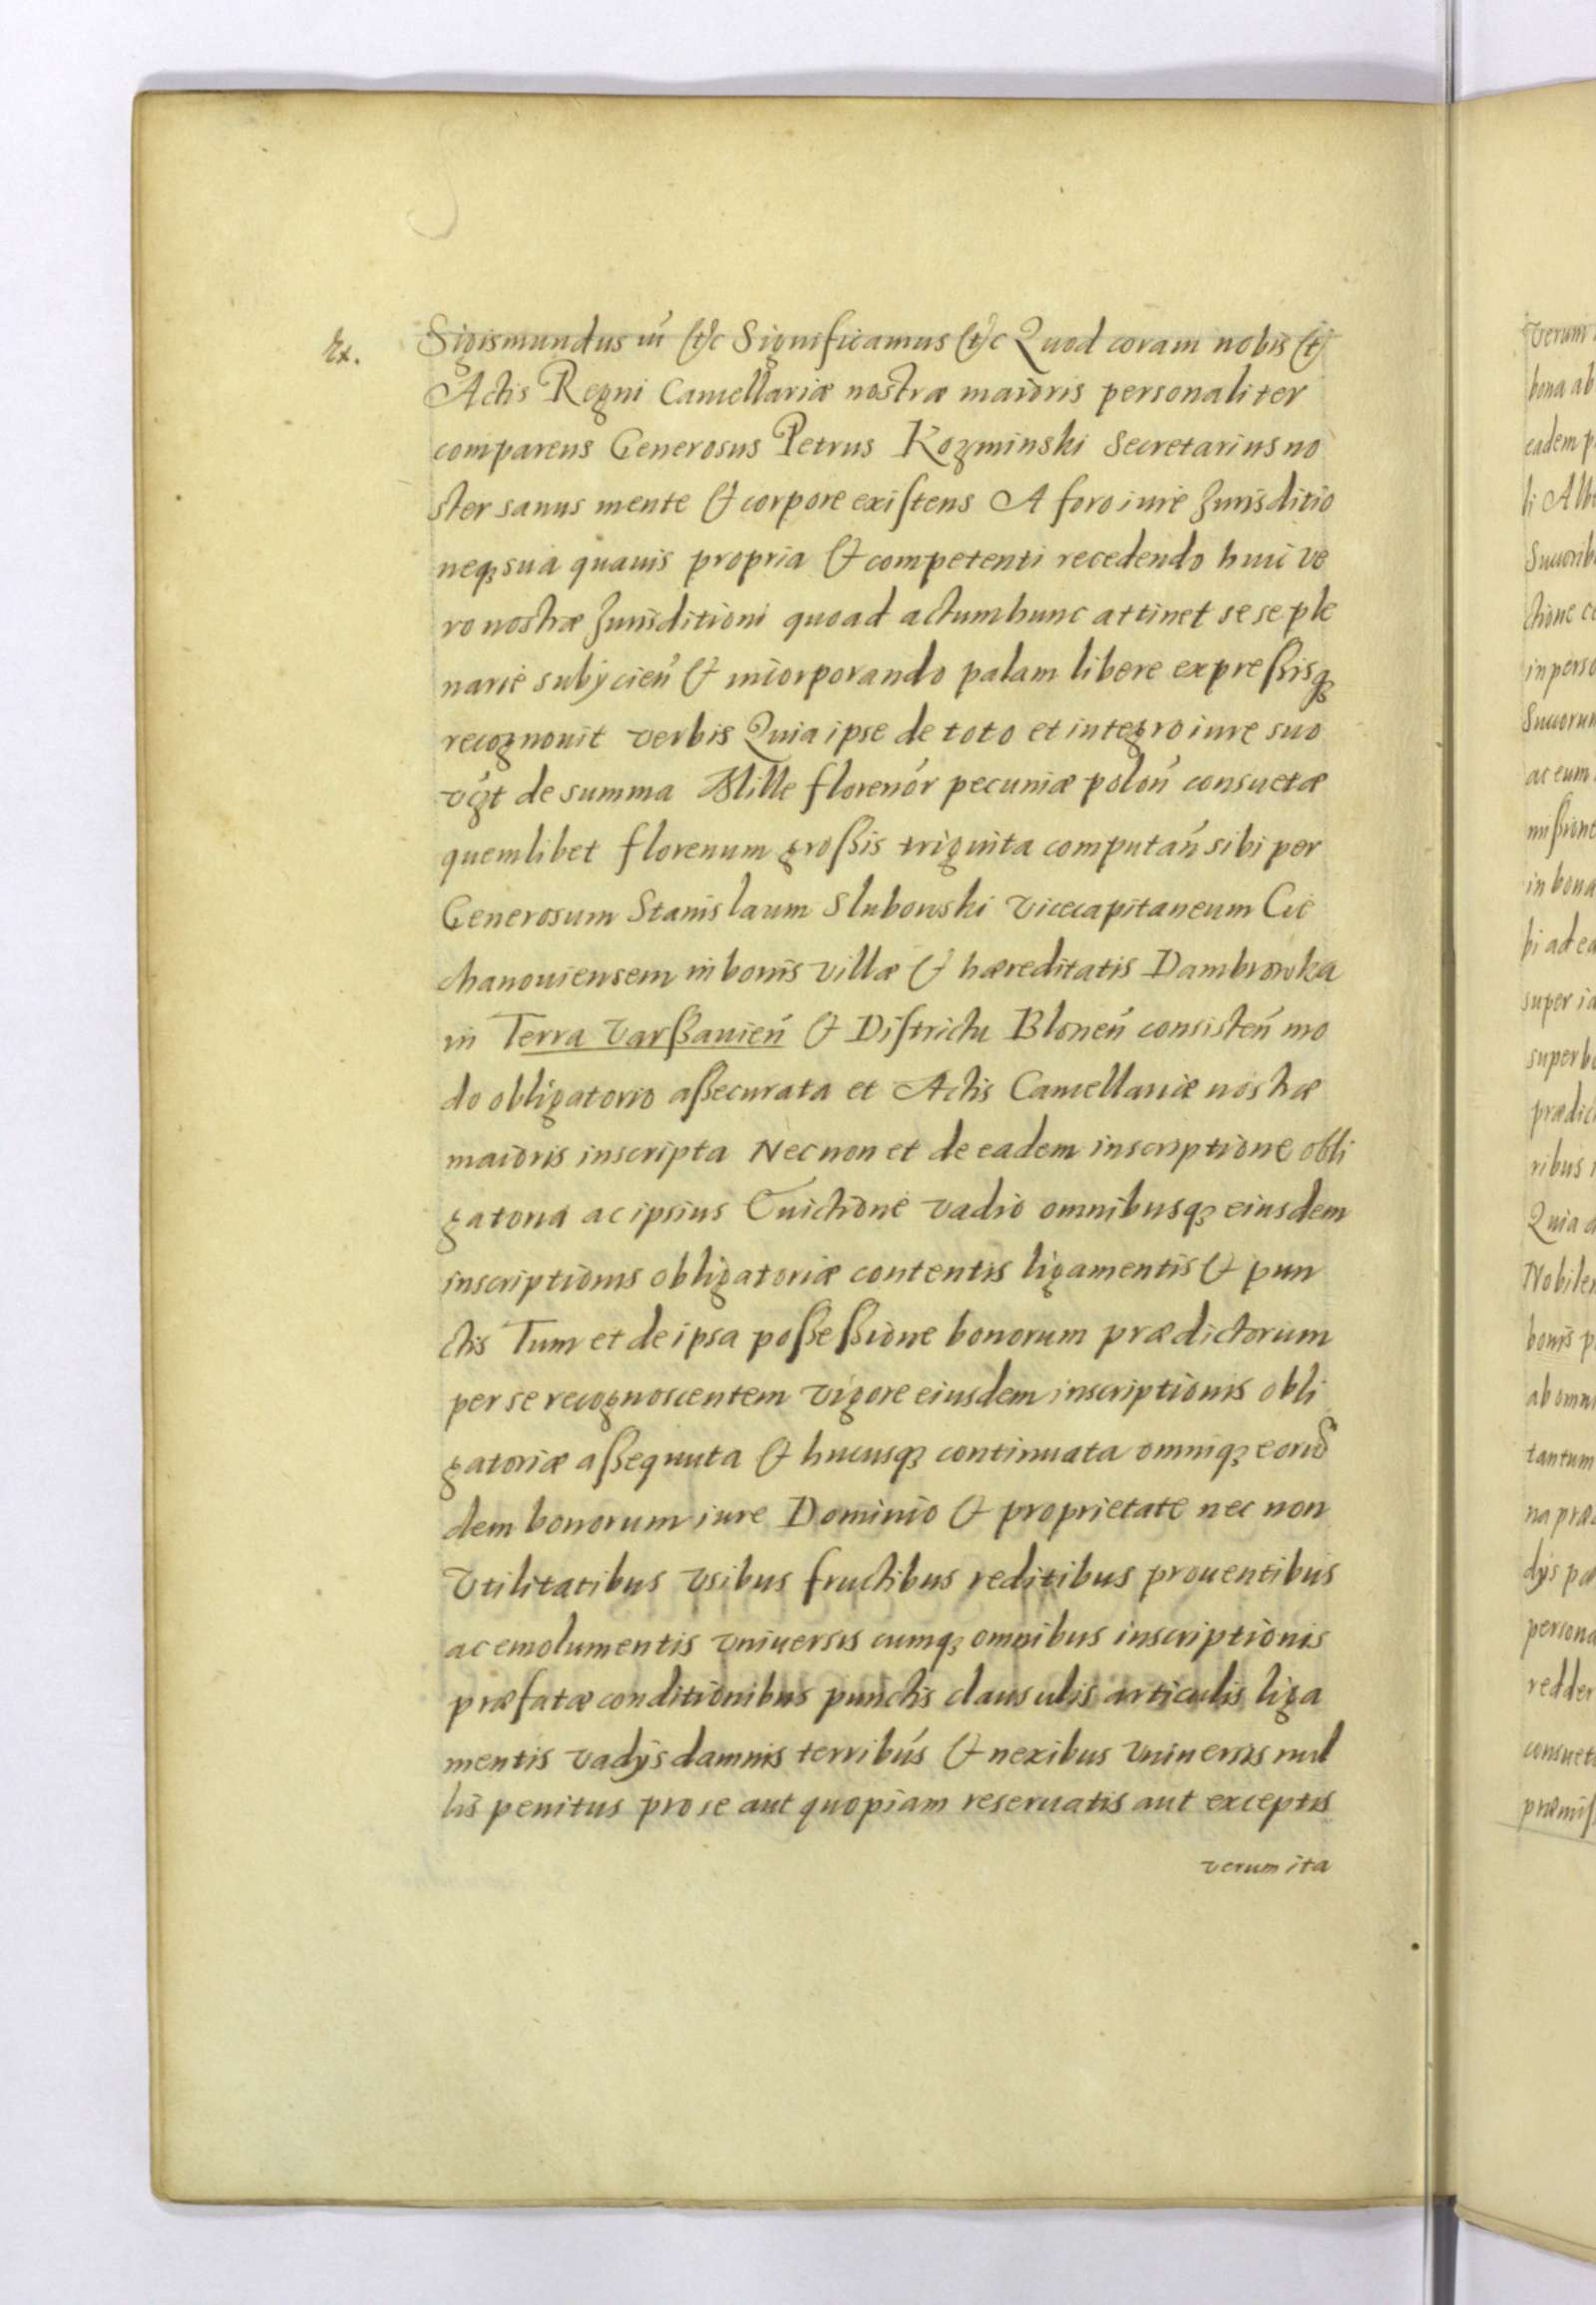 Ex.
Sigismundus iii &c Significamus &c Quod coram nobis &
Actis Regni Cancellariæ nostræ maioris personaliter
comparens Generosus Petrus Kozminski Secretarius no
ster sanus mente & corpore existens A foro iure Jurisditio
neq3 sua quauis propria & competenti recedendo huic ve
ro nostræ Jurisditioni quoad actum hunc attinet sese ple
narie subijcień & incorporando palam libere expressisq3
recognouit verbis Quia ipse de toto et integro iure suo
vigt de summa Mille florenór pecuniæ poloń consuetæ
quemlibet florenum grossis triginta computań sibi per
Generosum Stanislaum Slubowski vicecapitaneum Cie
chanouiensem in bonis villæ & hæreditatis Dambrowka
in Terra Varssauień & Districtu Bloneń consisteń mo
do obligatorio assecurata et Actis Cancellariæ nostræ
maioris inscripta Nec non et de eadem inscriptione obli
gatoria ac ipsius Euictione vadio omnibusq3 eiusdem
inscriptionis obligatoriæ contentis ligamentis & pun
ctis Tum et de ipsa possessione bonorum prædictorum
per se recognoscentem vigore eiusdem inscriptionis obli
gatoriæ assequuta & hucusq3 continuata omniq3 eorū
dem bonorum iure Dominio & proprietate nec non
vtilitatibus vsibus fructibus reditibus prouentibus
ac emolumentis vniuersis cumq3 omnibus inscriptionis
præfatæ conditionibus punctis clausulis articulis liga
mentis vadijs damnis terribús & nexibus vniuersis nul
lis penitus pro se aut quopiam reseruatis aut exceptis
verum ita